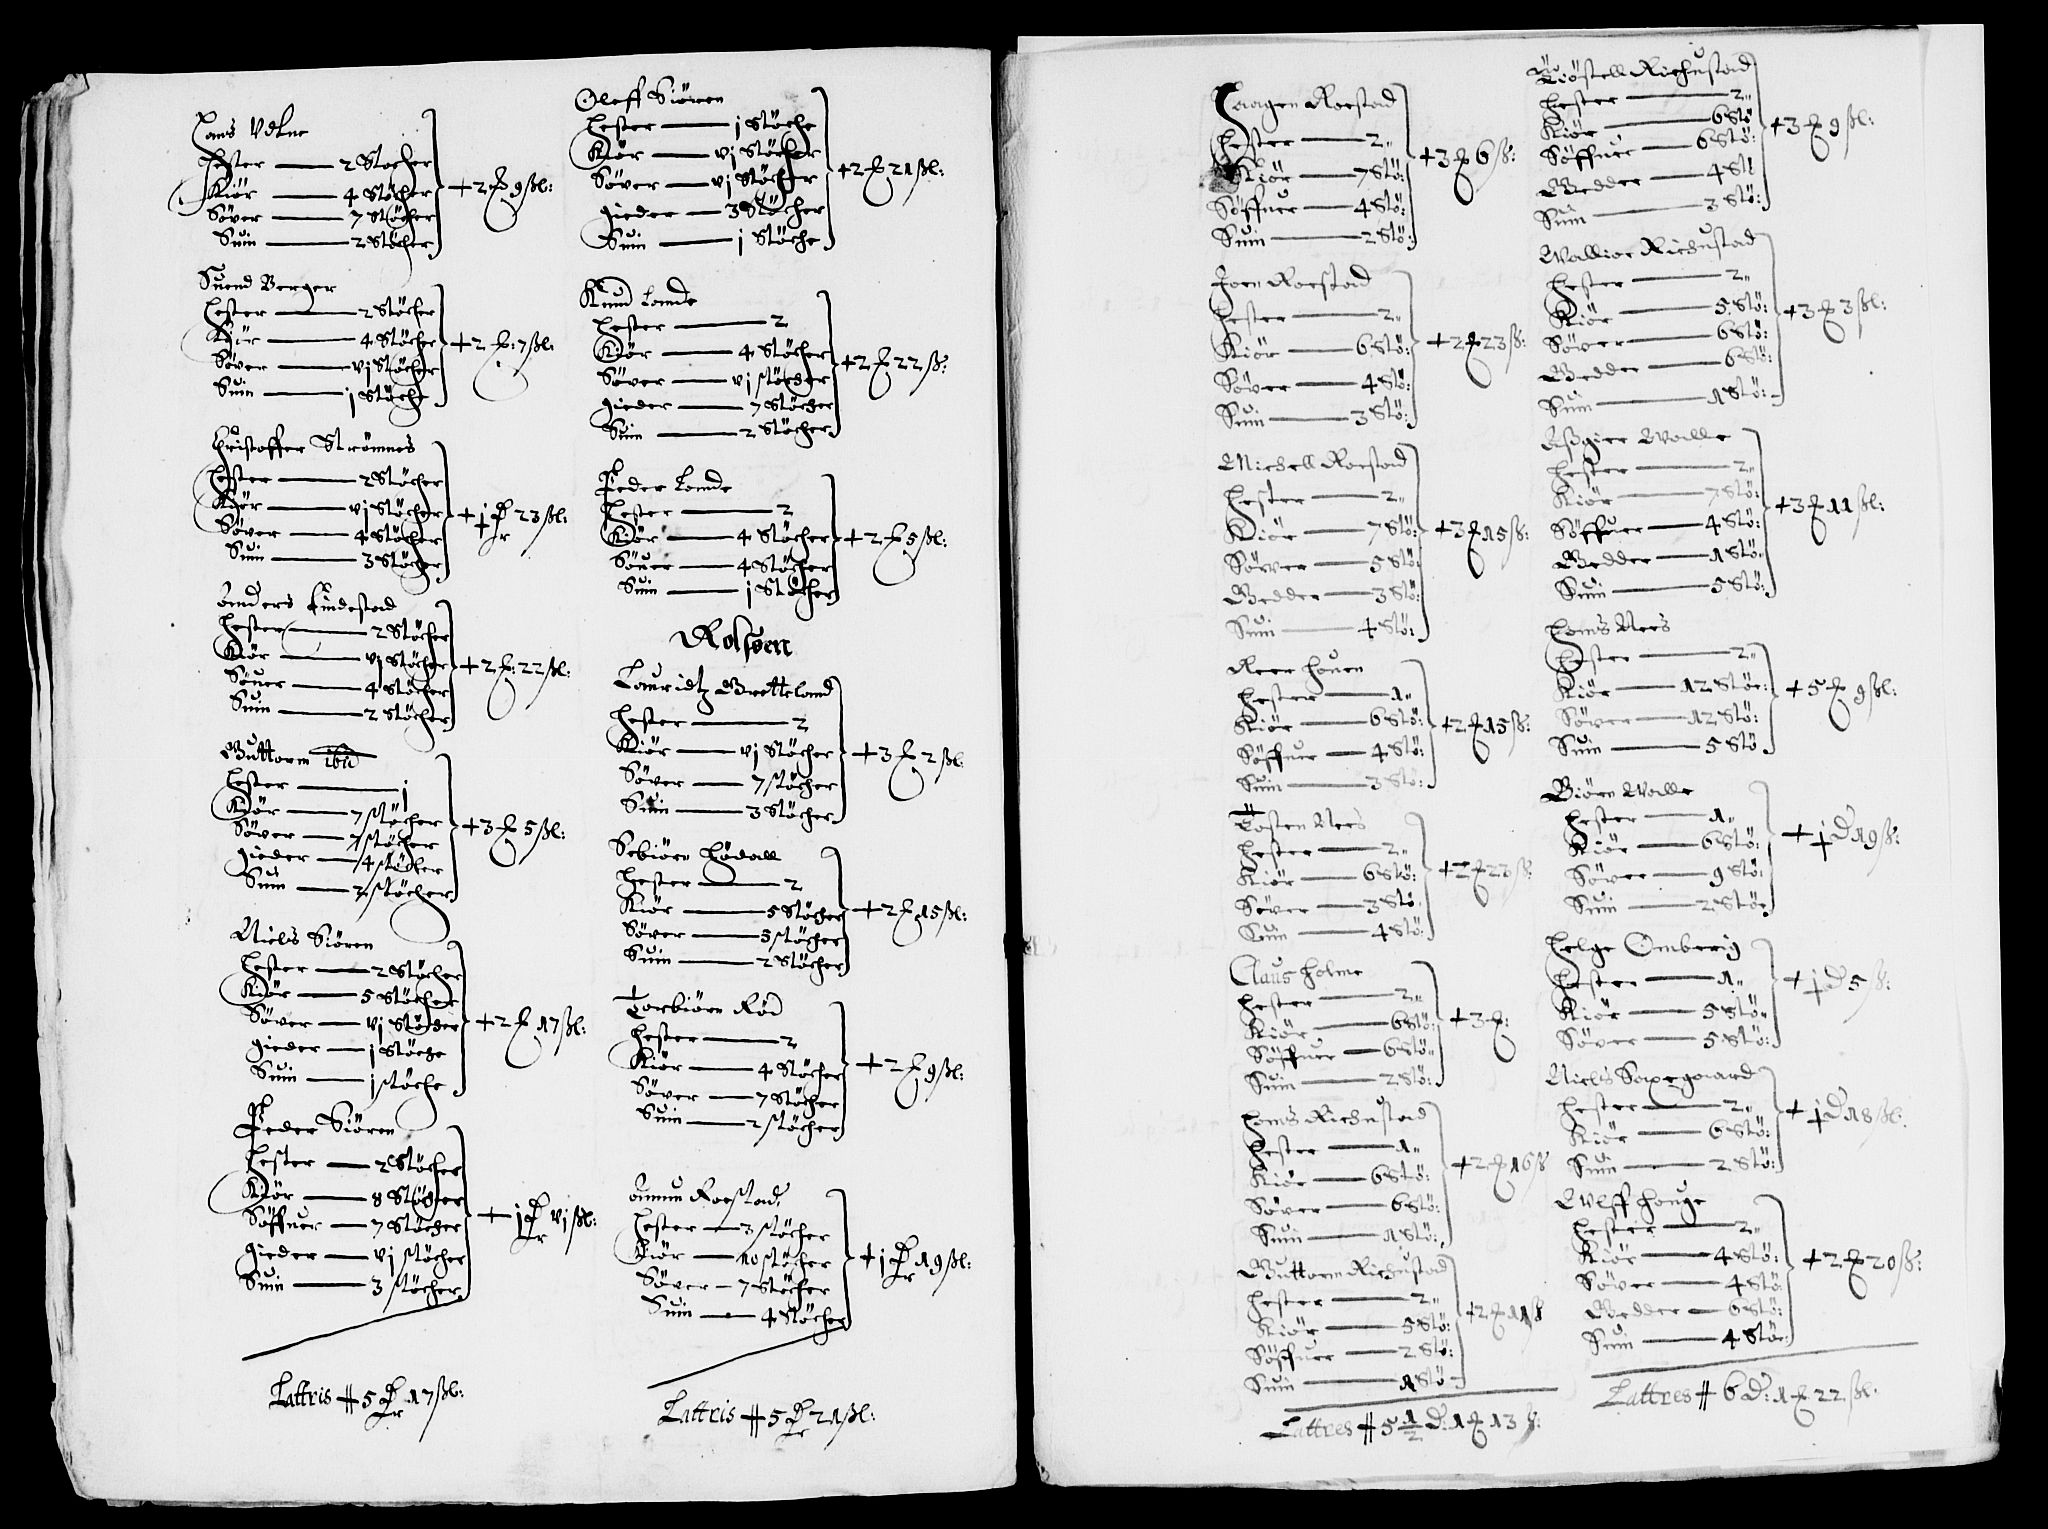 Hans Velue
Hester — 2 Stöcher
Kiör — 4 Stöcher
Söver — 7 Stöcher
Suin — 2 Stöcher
+ 2 9 ßl:
Suend Berger
Hester — 2 Stöcher
Kiör — 4 Stöcher
Söver — vj Stöcher
Suin — j Stöche
+ 2 : 7 ßl:
Christoffer Strömnes
Hester — 2 Stöcher
Kiör — vj Stöcher
Söver — 4 Stöcher
Suin — 3 Stöcher
+ j 23 ßl:
Anders Findestad
Hester — 2 Stöcher
Kiör — vj Stöcher
Söver — 4 Stöcher
Suin — 2 Stöcher
+ 2 : 22 ßl:
Guttorm ibid
Hester — j
Kiör — 7 stöcher
Söver — 7 stöcher
gieder — 4 stöcher
Suin — 2 stöcher
+ 3 5 ßl:
Niels Siören
Hester — 2 Stöcher
Kiör — 5 Stöcher
Söver — vj Stöcher
gieder — j Stöche
Suin — j stöche
+ 2 17 ßl:
Peder Siören
Hester — 2 Stöcher
Kiör — 8 Stöcher
Söffuer — 7 Stöcher
gieder — vj stöcher
Suin — 3 stöcher
+ j vj ßl:
Lattris # 5 17 ßl:
Oleff Siören
Hester — j Stöche
Kiör — vj Stöcher
Söver — vj Stöcher
gieder — 3 Stöcher
Suin — j Stöche
+ 2 21 ßl:
Knud Lomde
Hester — 2
Kiör — 4 Stöcher
Söver — vj stöcher
gieder — 7 Stöcher
Suin — 2 Stöcher
+ 2 22 ß:
Peder Lomde
Hester — 2
Kiör — 4 Stöcher
Söuer — 4 Stöcher
Suin — j Stöcher
+ 2 5 ßl:
Rolföen
Lauridtz Bretteland
Hester — 2
Kiör — vj Stöcher
Söver — 7 stöcher
Suin — 3 Stöcher
+ 3 2 ßl:
Sebiörn Hödall
Hester — 2
Kiör — 5 Stöcher
Söver — 5 stöcher
Suin — 2 Stöcher
+ 2 15 ßl:
Torbiörn Röd
Hester — 2
Kiör — 4 Stöcher
Söver — 7 Stöcher
Suin — 2 stöcher
+ 2 9 ßl:
Amun Roestad
Hester — 3 stöcher
Kiör — 10 stöcher
Söver — 7 Stöcher
Suin — 4 Stöcher
+ j 19 ßl:
Lattris # 5 21 ßl:
Haagen Roestad
Hester — 2 „
Kiör — 7 Stö:
Söffuer — 4 Stö:
Suin — 2 Stö:
+ 3 6 ß:
Joen Roestad
Hester — 2 „
Kiör — 6 Stö:
Söver — 4 Stö:
Suin — 3 Stö:
+ 2 23 ß:
Michell Roestad
Hester — 2 „
Kiör — 7 Stö:
Söver — 5 Stö:
Bedder — 3 Stö:
Suin — 4 Stö:
+ 3 15 ß:
Reer Houen
Hester — 1 „
Kiör — 6 Stö:
Söffuer — 4 Stö:
Suin — 3 Stö:
+ 2 15 ß:
Tosten Nees
Hester — 2 „
Kiör — 6 Stö:
Söver — 3 Stö
Suin — 4 Stö:
+ 2 22 ß:
Claus Holme
Hester — 2 „
Kiör — 6 Stö:
Söffuer — 6 Stö „
Suin — 2 Stö:
+ 3
Hans Richustad
Hester — 1 „
Kiör — 6 Stö:
Söver — 6 Stö:
Suin — 1 Stö:
+ 2 16 ß
Guttorm Richustad
Hester — 2 „
Kiör — 5 Stö:
Söffuer — 2 Stö:
Suin — 1 Stö
+ 2 11 ß
Lattres # 5 1/2 d: 1 13 ß:
Kiöstell Richustad
Hester — 2 „
Kiör — 6 Stö
Söffuer — 6 Stö:
Bedder — 4 St:
Suin — 3 Stö:
+ 3 9 ßl:
Wallior Richustad
Hester — 2 „
Kiör — 5 Stö:
Söver — 6 Stö:
Bedder — 6 Stö:
Suin — 1 Stö:
+ 3 3 ßl:
Asgier Walle
Hester — 2 „
Kiör — 7 Stö:
Söffuer — 4 Stö:
Bedder — 1 Stö „
Suin — 5 Stö:
+ 3 11 ßl:
Hans Nees
Hester — 2 „
Kiör — 12 Stör:
Söver — 12 Stö:
Suin — 5 Stö
+ 5 9 ßl:
Biörn Walle
Hester — 1 „
Kiör — 6 Stö:
Söver — 9 Stö:
Suin — 2 Stör
+ j d 19 ß:
Helge Omberig
Hester — 1 „
Kiör — 5 Stö „
Söver — 5 Stö:
+ j d 5 ß:
Niels Saxegaard
Hester — 2 „
Kiör — 6 Stö:
Suin — 2 Stö:
+ j d 18 ßl.
Olff Houge
Hester — 2 „
Kiör — 4 Stö:
Söver — 4 Stö
Bedder — 6 Stö:
Suin — 4 Stör:
+ 2 20 ß:
Lattres # 6 d: 1 22 ßl.